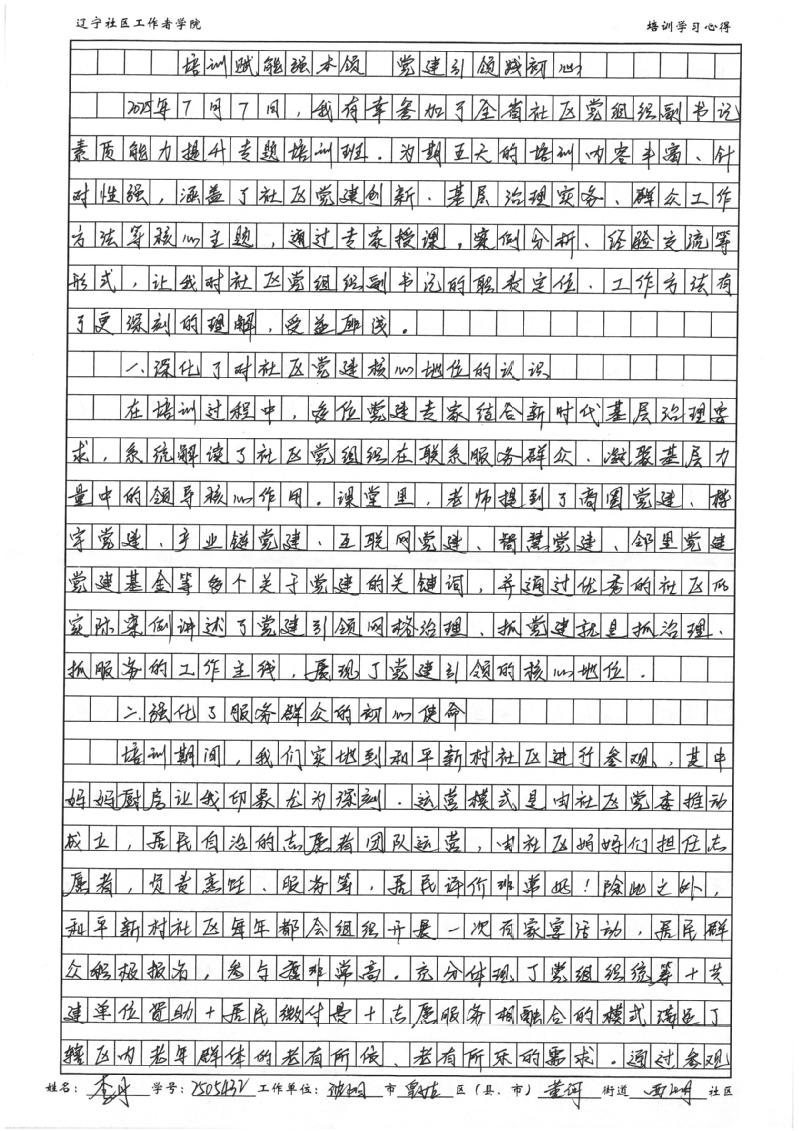 辽宁社区工作者学院 培训学习心得
培训赋能强本领 党建引领践初心
2025年7月7日,我有幸参加了全省社区党组织副书记
素质能力提升专题培训班。为期五天的培训内容丰富、针
对性强,涵盖了社区党建创新、基层治理实务、群众工作
方法等核心主题,通过专家授课,案例分析、经验交流等
形式,让我对社区党组织副书记的职责定位、工作方法有
了更深刻的理解,受益匪浅。
一、深化了对社区党建核心地位的认识
在培训过程中,各位党建专家结合新时代基层治理要
求,系统解读了社区党组织在联系服务群众、凝聚基层力
量中的领导核心作用。课堂里,老师提到了商圈党建、楼
宇党建、产业链党建、互联网党建、智慧党建、邻里党建
党建基金等多个关于党建的关键词,并通过优秀的社区的
实际案例讲述了党建引领网格治理、抓党建就是抓治理、
抓服务的工作主线,展现了党建引领的核心地位。
二、强化了服务群众的初心使命
培训期间,我们实地到和平新村社区进行参观、其中
妈妈厨房让我印象尤为深刻。运营模式是由社区党委推动
成立,居民自治的志愿者团队运营,由社区妈妈们担任志
愿者,负责烹饪、服务等,居民评价非常好!除此之外,
和平新村社区每年都会组织开展一次百家宴活动,居民群
众积极报名,参与度非常高。充分体现了党组织统筹+共
建单位资助+居民缴付费+志愿服务相融合的模式满足了
辖区内老年群体的老有所依、老有所乐的需求。通过参观
姓名: 李丹 学号:2505432 工作单位: 沈阳 市 皇姑 区(县、市) 黄河 街道 社区